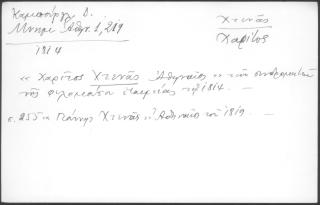 Καμπούρογλ. Δ.
Μνημ. Αθην. 1, 219
1814
Χτενάς
Χαρίτος
« Χαρίτος Χτενάς Ἀθηναῖος » τῶν συνδρομητῶν
τῆς φιλομούσου ἑταιρείας τοῦ 1814. —
σ. 255 « Γιάννης Χτενᾶς » Ἀθηναῖος τοῦ 1819. —